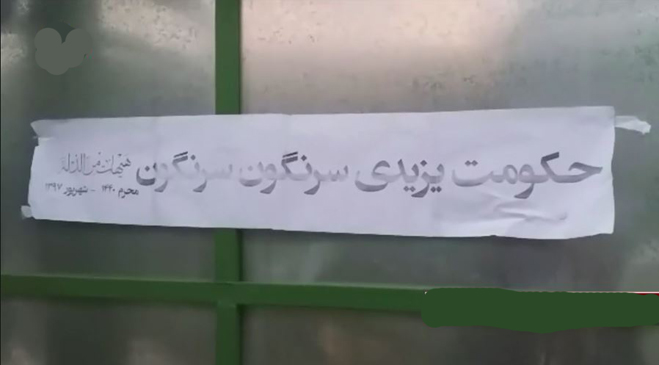 حکومت یزیدی سرنگون سرنگون
هیهات من الذله
محرم ۱۴۴۰ - شهریور ۱۳۹۷